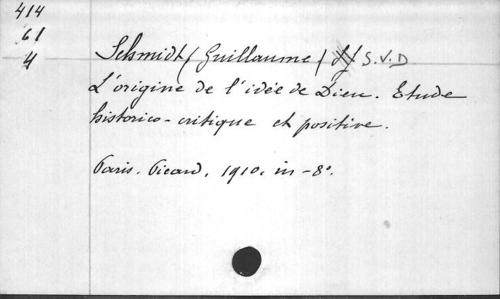 414
61
4
Schmidt (Guillaume) S.V.D
L'origine de l'idée de Dieu. Etude
historico-critique et positive.
Paris. Picard. 1910. in-8°.